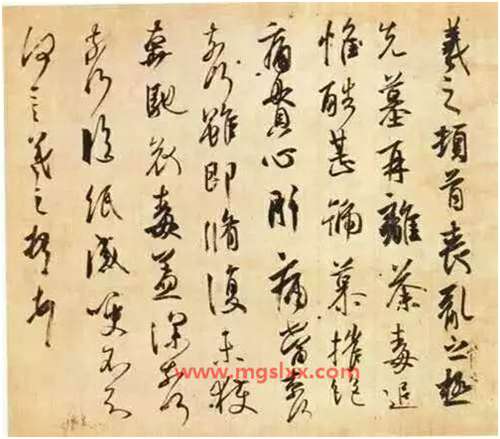 羲之頓首喪亂之極
先墓再離荼毒追
惟酷甚號慕摧絕
痛貫心肝痛當奈
奈何雖即脩復未獲
奔馳哀毒益深奈何
奈何臨紙感哽不知
何言羲之頓首
www.mgslxx.com